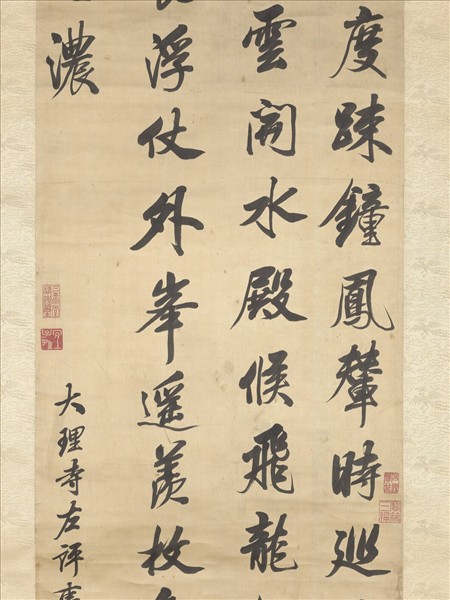 度踈鐘鳳輦時巡
雲開水殿候飛龍
浮仗外峯遥羨枚
濃
大理寺左評事